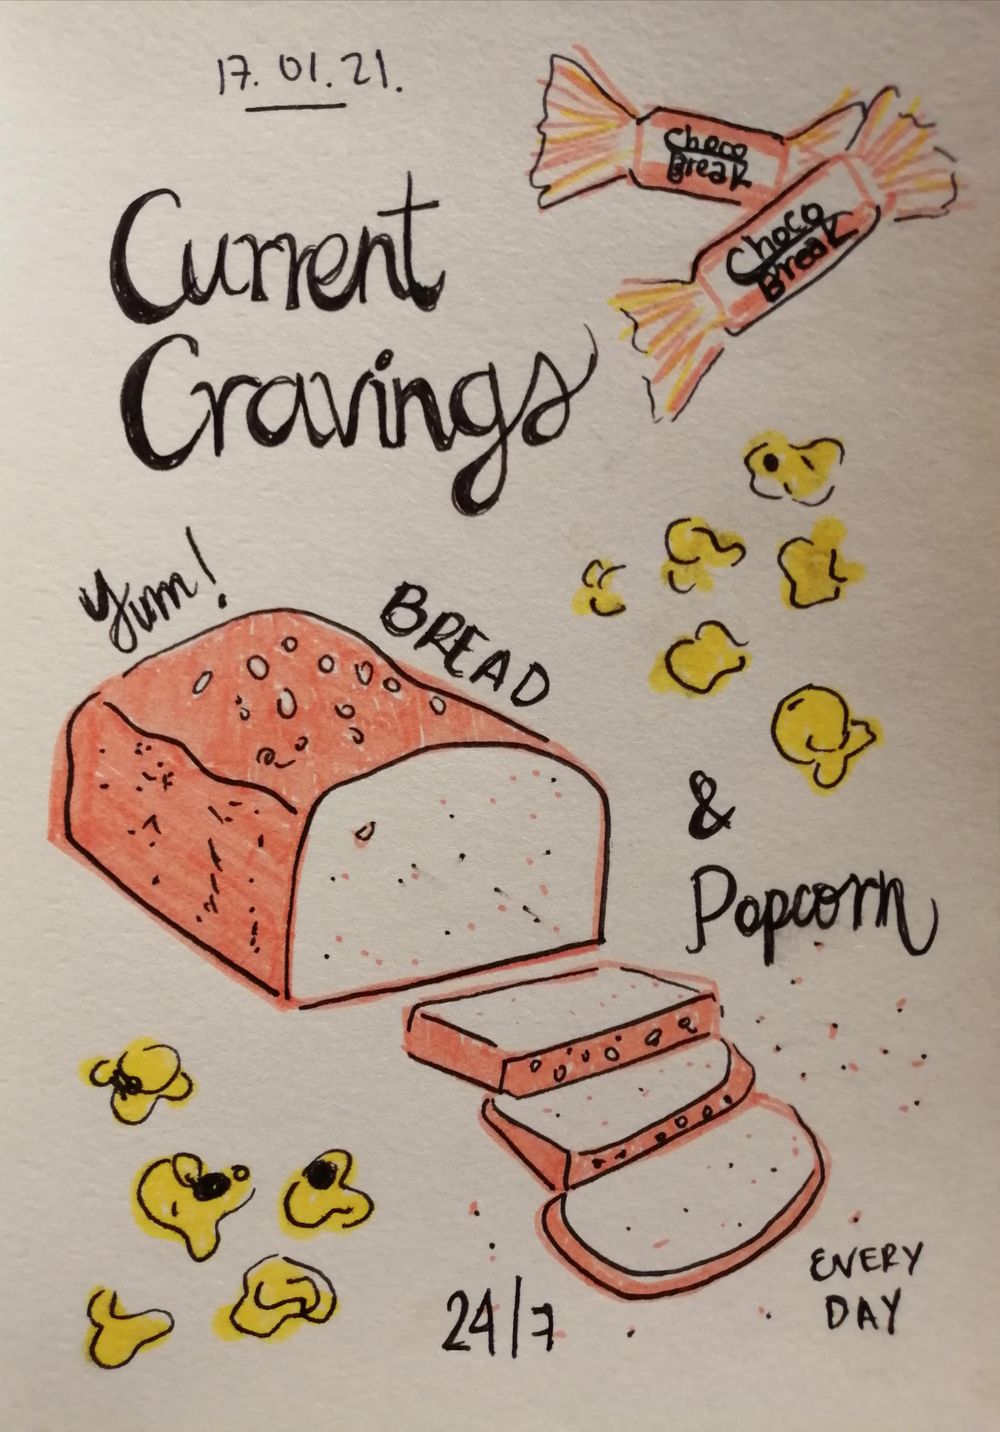 17.01.21.
Choco
Break
Choco
Break
Current
Cravings
Yum!
BREAD
&
Popcorn
24/7
EVERY
DAY